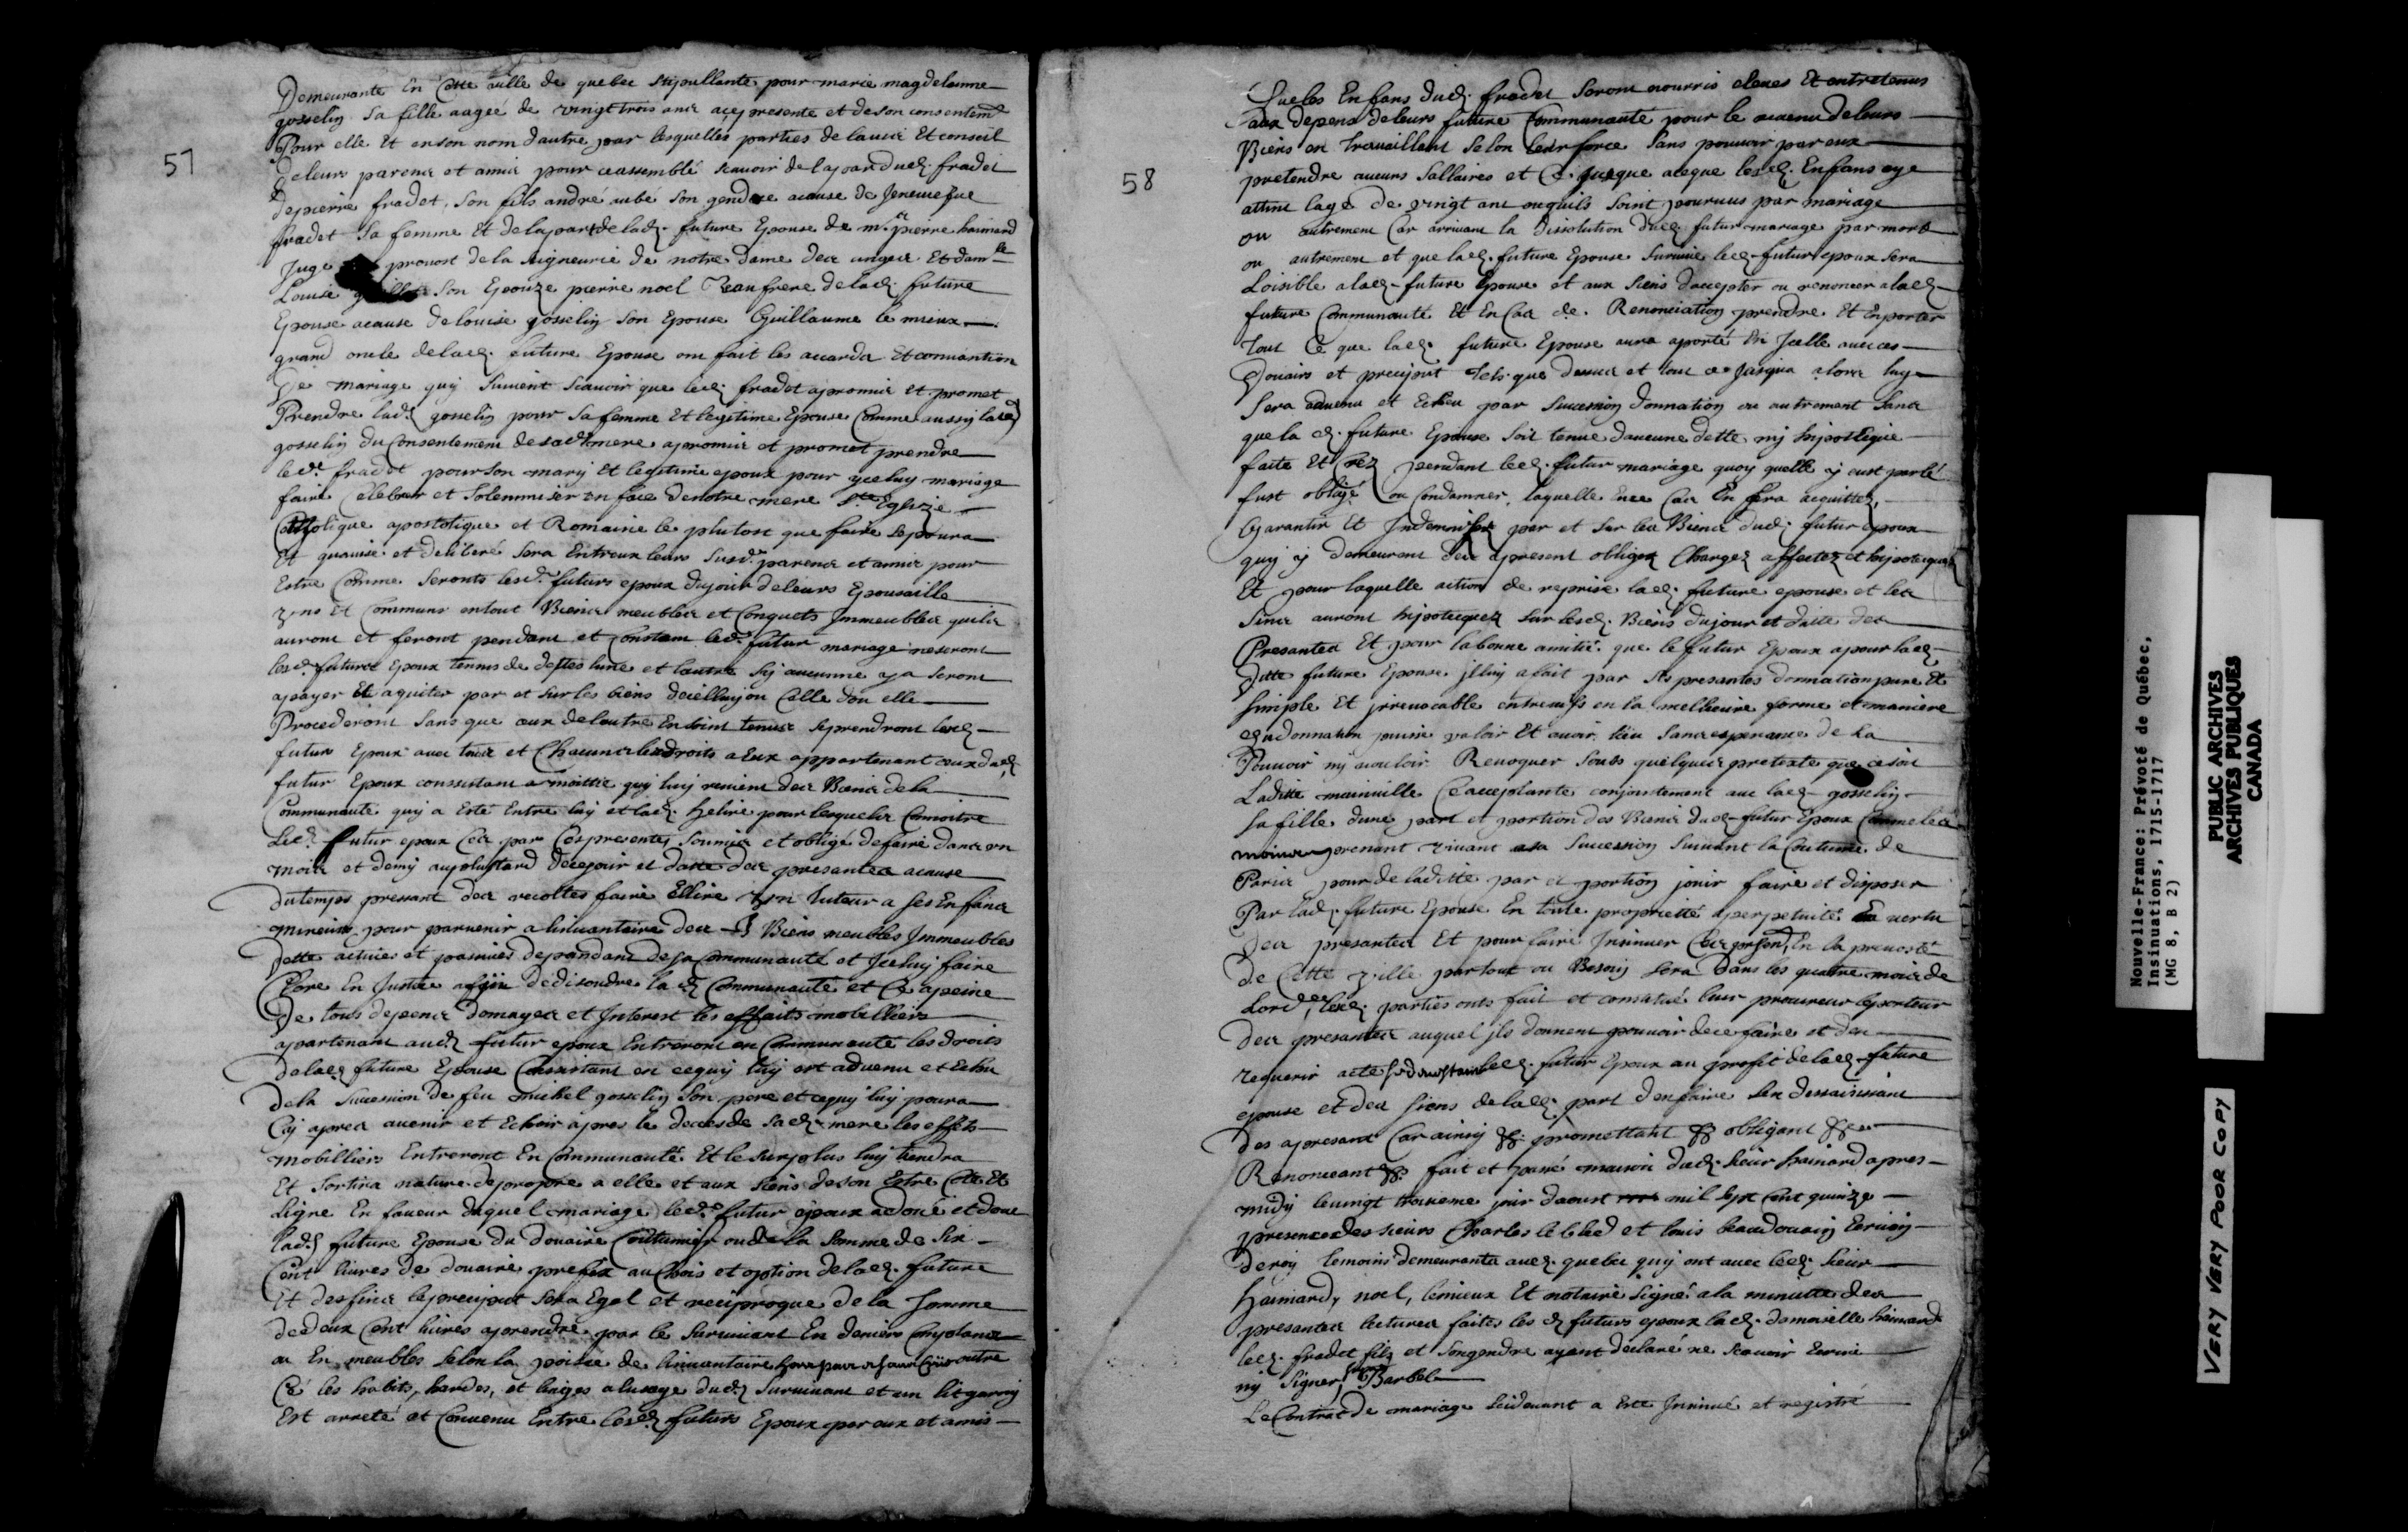 57
Demeurante En Cette ville de quebec stipullante pour marie magdelainne
gosselin sa fille aageé de vingt trois ans acej presente et de son consentemt
Pour elle Et en son nom dautre par lesquelles parties de lavis Et conseil
de leurs parens et amis pour ce assemblé scavoir de la par dud. fradet
de pierre fradet, son fils andré aubé son gendre acause de Jeneuiefue
fradet sa femme Et de la part de lad. future Epouse de mr. pierre haimard
Juge prevost de la seigneurie de notre dame des anges Et damlle
Louise son Epouze pierre noel Beaufrere de lad. future
Epouse acause de louise gosselin son Epouse Guillaume le mieux
grand oncle de lad. future Epouse ont fait les accords Et convantion
De mariage quj suivent scavoir que led. fradet a promis Et promet
Prendre lad. gosselin pour sa femme Et legitime Epouse Comme aussy lad
gosselin du Consentement de sad. mere a promis et promet prendre
led. fradet pour son mary Et legitime epoux pour yceluy mariage
faire Celebrer et Solemniser en face de notre mere Ste. Eglize
Catholique apostolique et Romaine le plutost que faire se poura
Et quavisé et deliberé sera Entreux leurs susd. parens et amis pour
Estre Comme seronts lesd. futurs epoux du jour de leurs Epousaille
uns Et Communs en tout Biens meubles et Conquets Jmmeubles quils
auront et feront pendant et Constant led. futur mariage ne seront
lesd. futurs Epoux tenus de dettes lune et lautre sy aucunne y a seront
a payer Et aquiter par et sur les biens de celluy ou Celle dou elle
Procederont sans que ceux de lautre En soint tenus se prendront lesd.
futurs Epoux avec tous et Chacuns les droits a Eux appartenant ceux dud.
futur Epoux consistant a moittié quj luy revient des Biens de la
Communauté quj a Esté Entre luy et lad. helire pour lesquels Connoitre
Led. futur epoux Cest par Ces presentes soumis et obligé de faire dans un
mois et demy au plustard de ce jour et datte des presantes acause
du temps pressant des recoltes faire Ellire un tuteur a ses Enfans
mineurs pour parvenir a linvantaire des Biens meubles Jmmeubles
dette actives et passives dependant de sa Communauté et Jceluy faire
Clore En Justice affin de disoudre la d. Communauté et Ce a peine
De tous depens Domages et Interest les effaits mobilliers
apartenant aud. futur epoux Entreront en Communauté les droits
de lad. future Epouse Consistant en ce quy luy est advenu et Echu
de la succession de feu michel gosselin son pere et ce quj luy poura
Cy apres avenir et Echoir apres le deces de sad. mere les effets
mobilliers Entreront En Communauté Et le surplus luy tiendra
Et sortira nature de propre a elle et aux siens de son Estre Coté Et
Ligne En faveur duquel mariage led. futur epoux a doué et doue
lad. future Epouse du douaire Coutumier ou de la somme de Six
Cent livres de douaire prefix au Chois et option de lad. future
Et des siens le preciput sera Egal et reciproque de la somme
de deux Cent livres a prendre par le survivant En deniers Comptans
ou En meubles selon la prisée de linvantaire hors part et sans Crue outre
Ce les habits, hardes, et linges a lusage dud. survivant et un lit garny
Est arreté et Convenu Entre lesd. futurs Epoux par eux et amis
58
Que les Enfans dud. fradet seront nourris elevés Et entretenus
aux depens de leurs future Communauté pour le revenu de leurs
Biens en travaillant selon leur force sans pouvoir par eux
pretendre aucuns sallaires et Ce jusque aceque lesd. Enfans aye
attint lage de vingt ans ou quils soint pourvus par mariage
ou autrement Car arrivant la Dissolution dud. futur mariage par mort
ou autrement et que lad. future Epouse survive led. futur epoux sera
Loisible a lad. future Epouse et aux siens daccepter ou renoncer a lad.
future Communauté Et En Cas de Renonciation prendre Et Enporter
tout Ce que lad. future Epouse aura aporté En Jcelle avec ces
Douaire et preciput tels que dessus et tout ce Jusqua alors luy
sera advenu et Echeu par succession Donnation ou autrement sans
que la d. future Epouse soit tenue daucune dette nj hipotéque
faite Et Créz pendant led. futur mariage quoy quelle y eust parlé
fust obligé ou Condamner laquelle En ce Cas En sera acquittez,
Garantir Et Indemniser par et sur les Biens dud. futur epoux
quj y demeurent des apresent obligez Chargez affectez et hipotequez
Et pour laquelle action de reprise lad. future epouse et les
siens auront hipoteques sur lesd. Biens du jour et datte des
Presantes Et pour la bonne amitié que le futur Epoux a pour lad.
Ditte future Epouse jlluy a fait par ses presantes donnation pure Et
simple Et jrrevocable entrevifs en la meilleure forme et maniere
que donnation puisse valoir Et avoir lieu sans esperance de La
Pouvoir nj vouloir Revoquer souss quelques pretexte que ce soit
Laditte mainville Ce acceptante conjointement avec lad. gosselin
sa fille dune part et portion des Biens dud. futur Epoux Comme les
moins prenant vivant a sa succession suivant la Coutume de
Paris pour de laditte par et portion jouir faire et disposer
Par lad. future Epouse En toute proprietté a perpetuité En vertu
Des presantes Et pour faire Insinuer Ces presentes En la prevosté
de Cette ville partout ou Besoin sera Dans les quatre mois de
Lordce. lesd. parties onts fait et constitué leur procureur le porteur
Des presantes auquel jls donnent pouvoir de ce faire et den
requerir acte led. futur Epoux au profit de lad. future
epouse et des siens de lad. part Den faire les dessaisissant
des apresant Car ainsy &c. promettant &c obligant &c
Renonceant &c. fait et passé maison dud. sieur hainard apres
midy le vingt troisieme jour daoust mil sept Cent quinze
presence des sieurs Charles le bled et louis beaudouain Ecrivin
de roy temoins demeurants aud. quebec quj ont avec led. sieur
Haimard, noel, lemieux Et notaire signé a la minutte des
presantes lectures faites les d. futurs epoux lad. demoiselle haimard
led. fradet fils et son gendre ayant declaré ne scavoir Ecrire
nj signer, Barbel
Le Contrat de mariage cidevant a Esté Jnsinué et registré
Nouvelle-France: Prévoté de Québec,
Insinuations, 1715-1717
(MG 8, B 2)
PUBLIC ARCHIVES
ARCHIVES PUBLIQUES
CANADA
VERY VERY POOR COPY